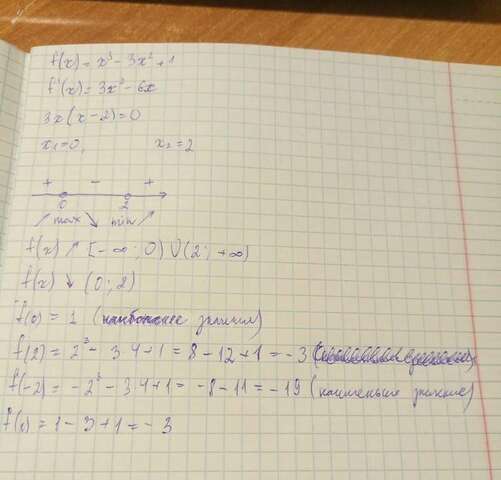 f(x) = x³ - 3x² + 1
f'(x) = 3x² - 6x
3x(x - 2) = 0
x₁ = 0, x₂ = 2
+ - +
0 2
↗ max ↘ min ↗
f(x) ↗ [-∞; 0) ∪ (2; +∞)
f(x) ↓ (0; 2)
f(0) = 1 (наибольшее значение)
f(2) = 2³ - 3·4 + 1 = 8 - 12 + 1 = -3
f(-2) = -2³ - 3·4 + 1 = -8 - 11 = -19 (наименьшее значение)
f(1) = 1 - 3 + 1 = -3